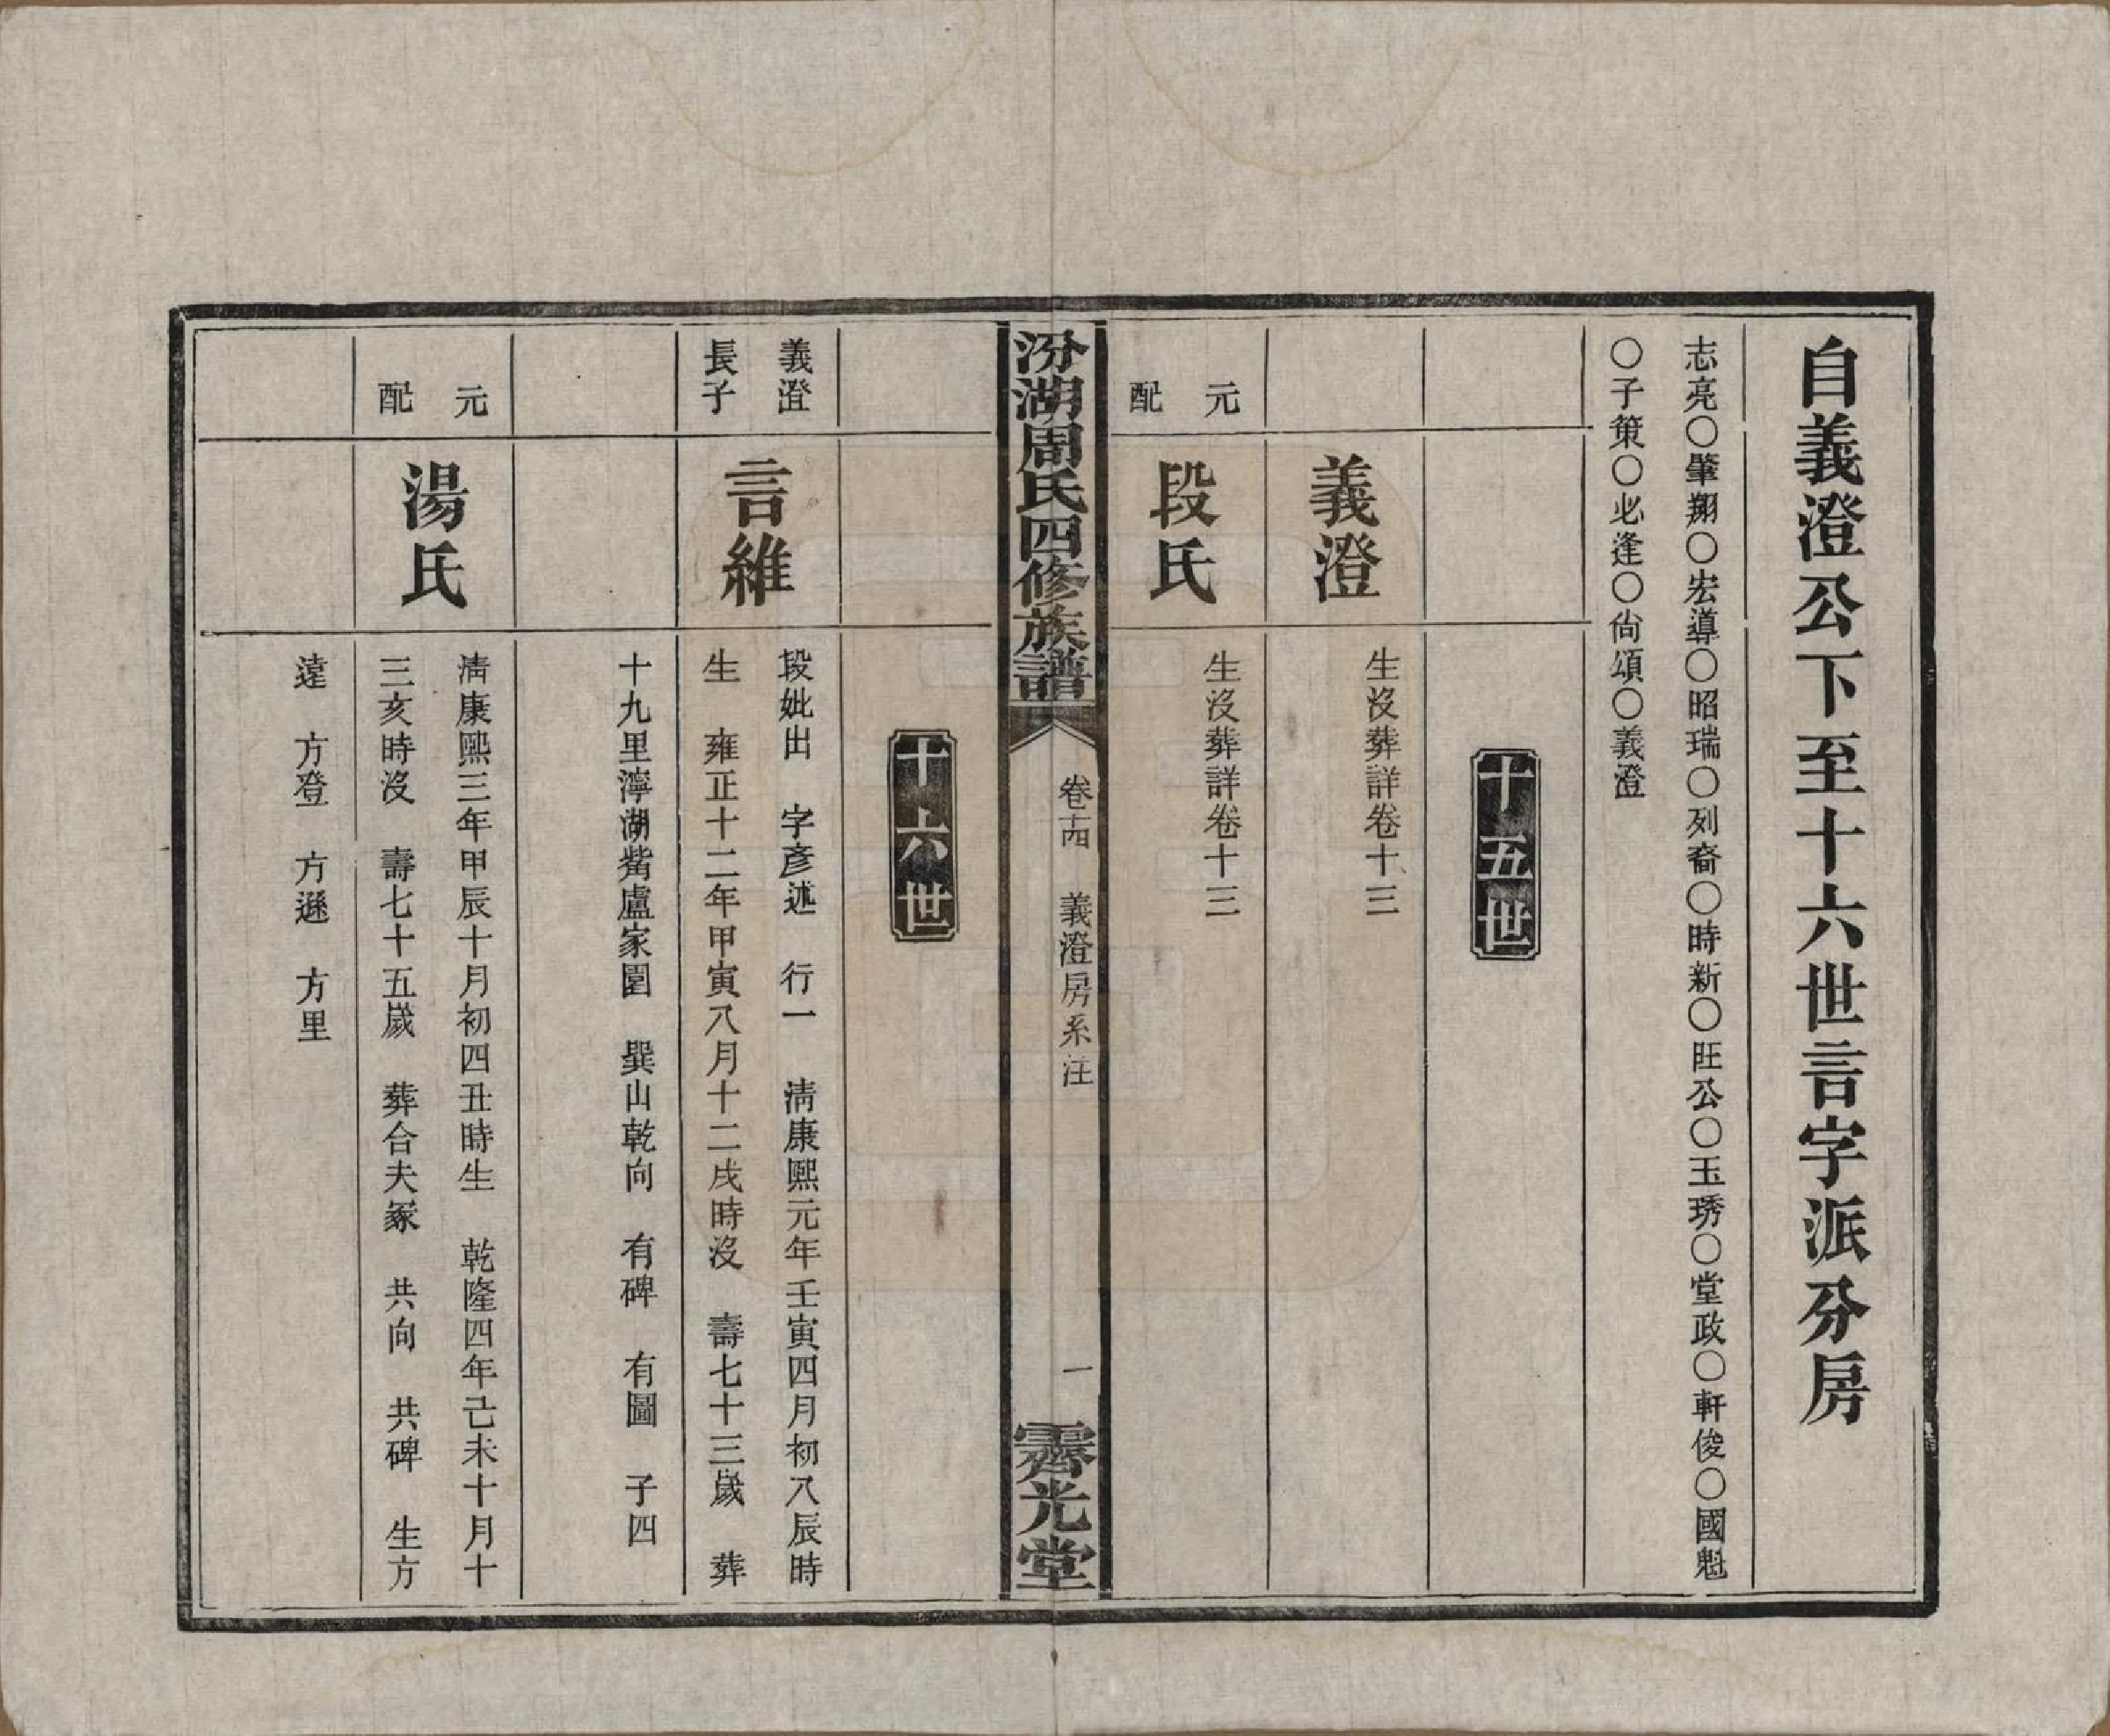 自義澄公下至十六世言字派分房
志亮〇肇翔〇宏導〇昭瑞〇列裔〇時新〇旺公〇玉琇〇堂政〇軒俊〇國魁
〇子策〇必逢〇尙頌〇義澄
十五世
義澄
生沒葬詳卷十三
元配
段氏
生沒葬詳卷十三
汾湖周氏四修族譜
卷十四 義澄房系注
一
霽光堂
十六世
義澄
長子
言維
段妣出 字彥述 行一 淸康熙元年壬寅四月初八辰時
生 雍正十二年甲寅八月十二戌時沒 壽七十三歲 葬
十九里濘湖觜盧家園 巽山乾向 有碑 有圖 子四
元配
湯氏
淸康熙三年甲辰十月初四丑時生 乾隆四年己未十月十
三亥時沒 壽七十五歲 葬合夫冢 共向 共碑 生方
遠 方登 方遜 方里